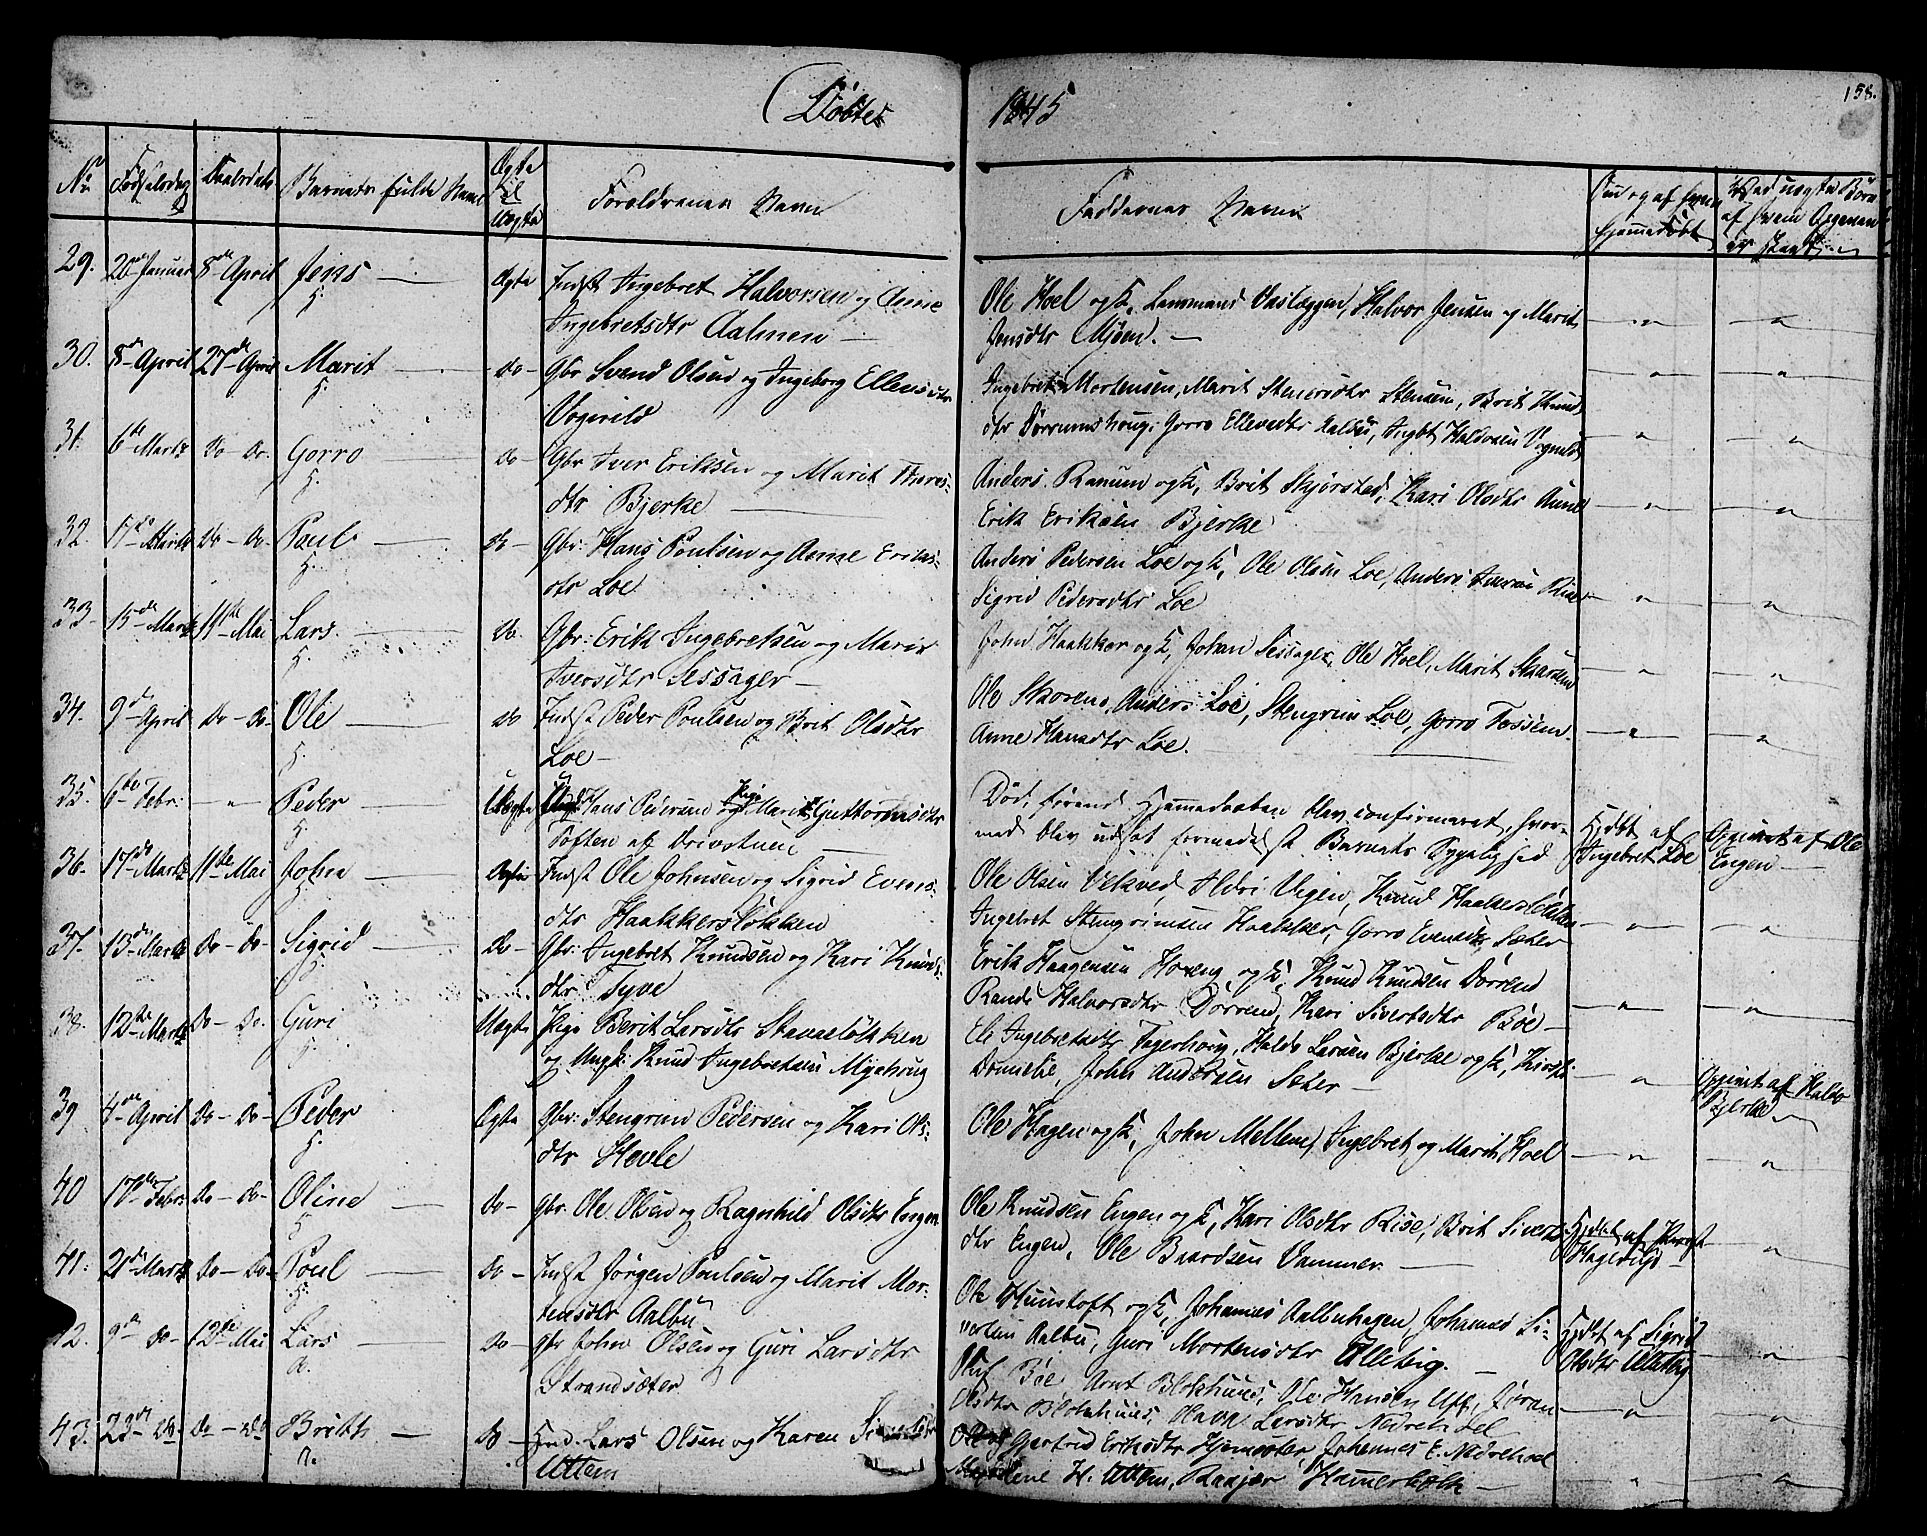 Døbte 1845
158.
No Fødselsdag Daabsdato Barnets fulde Navn Ægte el Uægte Forældrenes Navn Faddernes Navne Om og af hvem hjemmedøbt Ved uægte Børn af hvem
29. 20de Januar 8de April Jens Ægte Indst Ingebret Halvorsen og Anne
Ingebretsdtr Aalmen
Ole Hoel og K, Lensmand Vasleggen, Halvor Jensen og Marit
Jensdtr Mjøen.
30. 8de April 27de April Marit do Gbr Svend Olsen og Ingeborg Ellensdtr
Vognild
Ingebret Mortensen, Marit Stenersdtr Stensen, Brit Knuds
dtr Dørrumshaug, Gorro Ellevsdtr Aalbu, Ingbt Haldosen Vognild
31. 6te Marts Do Do. Gorro do Gbr Iver Eriksen og Marit Thores
dtr Bjerke
Anders Ranum og K, Brit Skjørstad, Kari Olsdtr Aune
Erik Eriksen Bjerke
32. 17de Marts Do Do. Poul do Gbr: Hans Poulsen og Anne Eriks
dtr Loe
Anders Pedersen Loe og K, Ole Olsen Loe, Anders Iversen Rise
Sigrid Pedersdtr Loe
33 15de Marts 11te Mai Lars. Do. Gbr: Erik Ingebretsen og Marit
Iversdtr Sessager
John Haakker og K, Johan Sessager, Ole Hoel, Marit Skaarden
34. 9de April Do Do. Ole do Indst Peder Poulsen og Brit Olsdtr
Loe
Ole Skoren, Anders Loe, Stengrim Loe, Gorro Fossem.
Anne Hansdtr Loe.
35. 6te Febr: Peder Uægte Ungk Hans Pedersen og Pige Marit Guttormsdtr
Toften af Drivstuen
Død, førend Hjemmedaaben blev confirmeret, hvor-
med blev udsat formedelst Barnets Sygelighed
Hjdbt af
Ingebret Loe
Opgivet af Ole
Engen
36. 17de Marts 11te Mai John Ægte Indst Ole Johnsen og Sigrid Evens
dtr Haakkersløkken
Ole Olsen Vekved, Ildri Vigen, Knud Haakkersløkken
Ingebret Stengrimsen Haakker, Gorro Evensdtr Sæter
37. 13de Marts Do Do Sigrid Do Gbr: Ingebret Knudsen og Kari Knuds
dtr Tyve
Erik Haagensen Hoxeng og K, Knud Knudsen Dørrem
Rande Halvorsdtr Dørrem, Kari Sivertsdtr Bøe
38. 12te Marts Do Do. Guri Uægte Pige Berit Larsdtr Stavaeløkken
og Ungk: Knud Ingebretsen Myrhaug
Eli Ingebretsdtr Fagerhaug, Haldo Larsen Bjerke og K, Kirsti
Domelie, John Andersen Sæter
Opgivet af Haldo
Bjerke
39 4de April Do Do Peder Ægte Gbr: Stengrim Pedersen og Kari Ols
dtr Hevle
Ole Hagen og K, John Mellem, Ingebret og Marit Hoel
40 17de Febr. Do Do Oline Do Gbr. Ole Olsen og Ragnhild Olsdtr Engen
Ole Knudsen Engen og K, Kari Olsdtr Rise, Brit Siverts
dtr Engen, Ole Baardsen Vammer
41. 21de Marts Do Do Poul Do Indst Jørgen Poulsen og Marit Mor-
tensdtr Aalbu
Ole Hunstoft og K, Johannes Aalbuhagen, Johannes Si-
vertsen Aalbu, Guri Mortensdtr Ulleberg.
Hjdbt af Sigrid
Olsdtr
42. 9de do 12te Mai Lars Do Gbr John Olsen og Guri Larsdtr
Strandsæter
Oluf Bøe Arnt Blokhuus, Ole Hansen Utt, Jøran
Olsdtr Blokhuus, Larsdtr Nedrehoel
43. 23de do do do Brith Do Lars Olsen og Karen
Uttem
Gjertrud Eriksdtr Hjemsæter, Johannes E. Nedrehoel
H. Uttem,